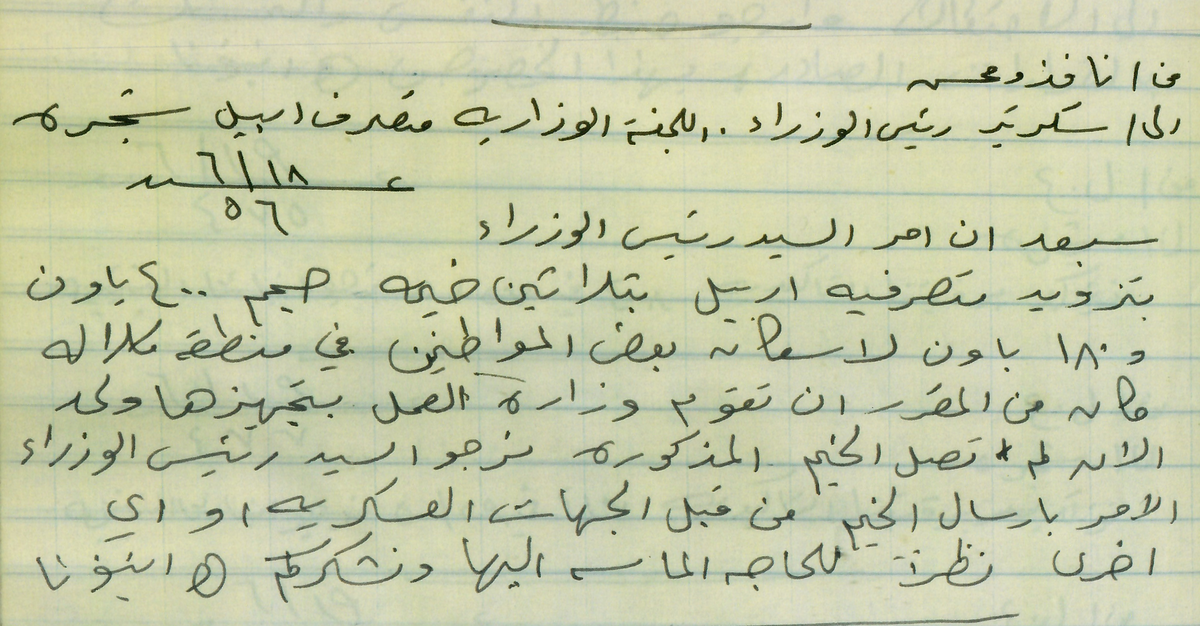 من / نافذ ومحسن
الى / سكرتير رئيس الوزراء . اللجنة الوزاريه متصرف اربيل
١٨/٦
٥٦
سبعد ان امر السيد رئيس الوزراء
بتزويد متصرفيه اربيل بثلاثين خيمه حجم ٤٠٠ باون
و ١٨٠ باون لاسكان بعض المواطنين في منطقة كلاله
كان من المقرر ان تقوم وزارة العمل بتجهيزها ولحد
الان لم تصل الخيم المذكوره نرجو السيد رئيس الوزراء
الامر بارسال الخيم من قبل الجهات العسكريه او اي
اخرى نظرا للحاجه الماسه اليها ونشكركم